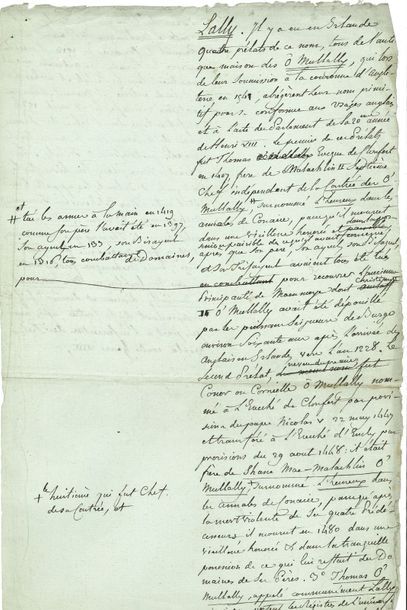 Lally. Il y a eu en Irlande
quatre prélats de ce nom, tous de l'anti
que maison des O Mullally, qui lors
de leur soumission à la couronne d'Angle
terre en 1541, abrégèrent leur nom primi
tif pour se conformer aux usages anglais
et à l'acte du Parlement de la 20me année
de Henri VIII. Le premier de ces Prélats
fut Thomas Evêque de Clonfert
en 1407 frere de Malachlin le septième
Chef indépendant de la Contrée des O'
Mullally, surnommé l'heureux dans les
annales de Conacie, parce qu'il mourut
dans une vieillesse honorée et
paisible
après que son pere, son ayeul, son Bisayeul
et son Trisayeul avoient tous été tués
en combattant pour recouvrer l'ancienne
Principauté de Maenmoye dont
O' Mullally avait été dépouillé
par les puissans Seigneurs de Burgo
environ soixante ans après l'arrivée des
Anglais en Irlande, vers l'an 1228. Le
second Prélat,
Conor ou Corneille O Mullally nom-
mé à l'Evêché de Clonfert par provi
sion du pape Nicolas V 22 may 1447
et transféré à l'Evêché d'Emly par
provisions du 29 août 1448: il était
frere de Shane Mac-Malachlin O'
Mullally surnommé l'heureux dans
les annales de Conacie, parce qu'après
la mort violente de ses quatre Prédé-
cesseurs il mourut en 1480 dans une
vieillesse honorée et dans la tranquille
possession de ce qui lui restait des Do
maines de ses Pères. 3° Thomas O'
Mullally, appelé communément Lally
et tué les armes à la main en 1419
comme son père l'avait été en 1397,
son ayeul en 1353, son Bisayeul
en 1316 tous combattant
pour
+ le huitième qui fut Chef
de sa Contrée, et